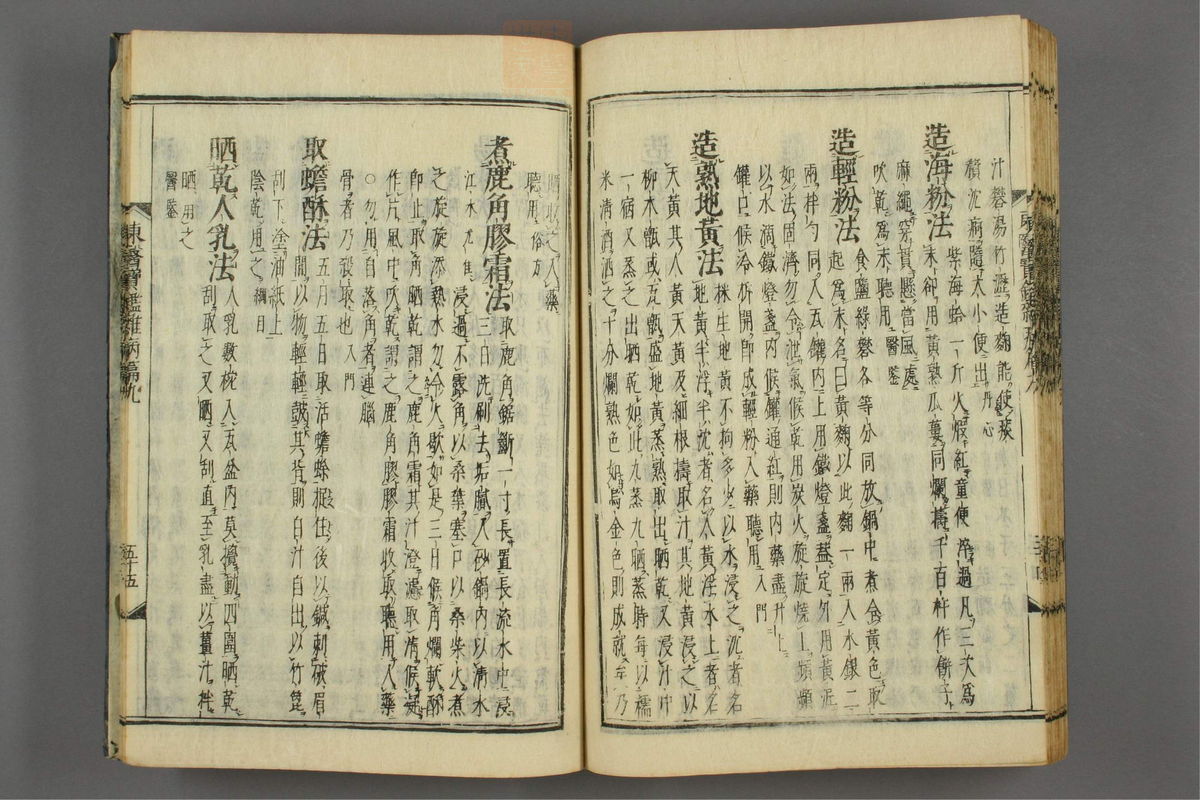 汁礬湯竹瀝造麯能使痰
積沈痾隨大小便出丹心
造海粉法
紫海蛤一斤火煆紅童便淬過凡三次爲
末却用黃熟瓜蔞同爛擣千百杵作餠子
麻繩穿貫懸當風處
吹乾爲末聽用醫鑒
造輕粉法
食鹽綠礬各等分同放鍋中煮令黃色取
起爲末名曰黃麯以此麯一兩入水銀二
兩拌勻同入瓦罐內上用鐵燈盞盖定外用黃泥
如法固濟勿令泄氣候乾用炭火旋旋燒上頻頻
以水滴鐵燈盞內候罐通紅則內藥盡升上
罐口候冷拆開卽成輕粉入藥聽用入門
造熟地黃法
株生地黃不拘多少以水浸之沈者名
地黃半浮半沈者名人黃浮水上者名
天黃其人黃天黃及細根擣取汁其地黃浸之以
柳木甑或瓦甑盛地黃蒸熟取出晒乾又浸汁中
一宿又蒸之出晒乾如此九蒸九晒蒸時每以糯
米淸酒洒之十分爛熟色如烏金色則成就乃
東醫寶鑑雜病篇九
聽用俗方
煮鹿角膠霜法
取鹿角鋸斷一寸長置長流水中浸
三日洗刷去垢膩入砂鍋內以淸水
浸過不露角以桑葉塞口以桑柴火煮
之旋旋添熱水勿令火歇如是三日候角爛軟酥
卽止取角晒乾謂之鹿角霜其汁澄濾取淸候凝
作片風中吹乾謂之鹿角膠膠霜收取聽用入藥
○勿用自落角者連腦
骨者乃殺取也入門
取蟾酥法
五月五日取活蟾蜍縛住後以鍼刺破眉
間以物輕輕鼓其背則白汁自出以竹篦
刮下塗油紙上
陰乾用之綱目
晒乾人乳法
人乳數椀入瓦盆內莫攪動四圍晒乾
刮取之又晒又刮直至乳盡以薑汁拌
晒用之
醫鑒
東醫寶鑑雜病篇九
五十五